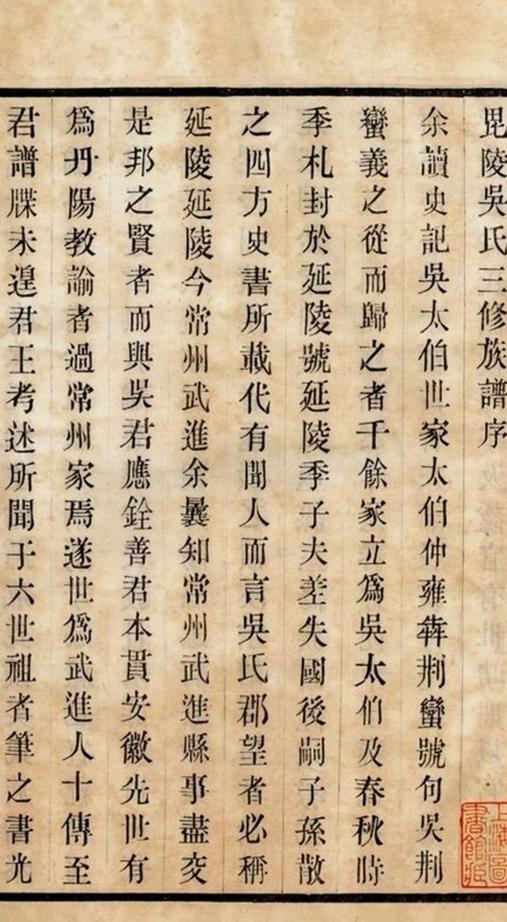 毘陵吳氏三修族譜序
余讀史記吳太伯世家太伯仲雍犇荆蠻號句吳荆
蠻義之從而歸之者千餘家立爲吳太伯及春秋時
季札封於延陵號延陵季子夫差失國後嗣子孫散
之四方史書所載代有聞人而言吳氏郡望者必稱
延陵延陵今常州武進余曩知常州武進縣事盡交
是邦之賢者而與吳君應銓善君本貫安徽先世有
爲丹陽教諭者過常州家焉遂世爲武進人十傳至
君譜牒未遑君王考述所聞于六世祖者筆之書光
上海圖書館藏